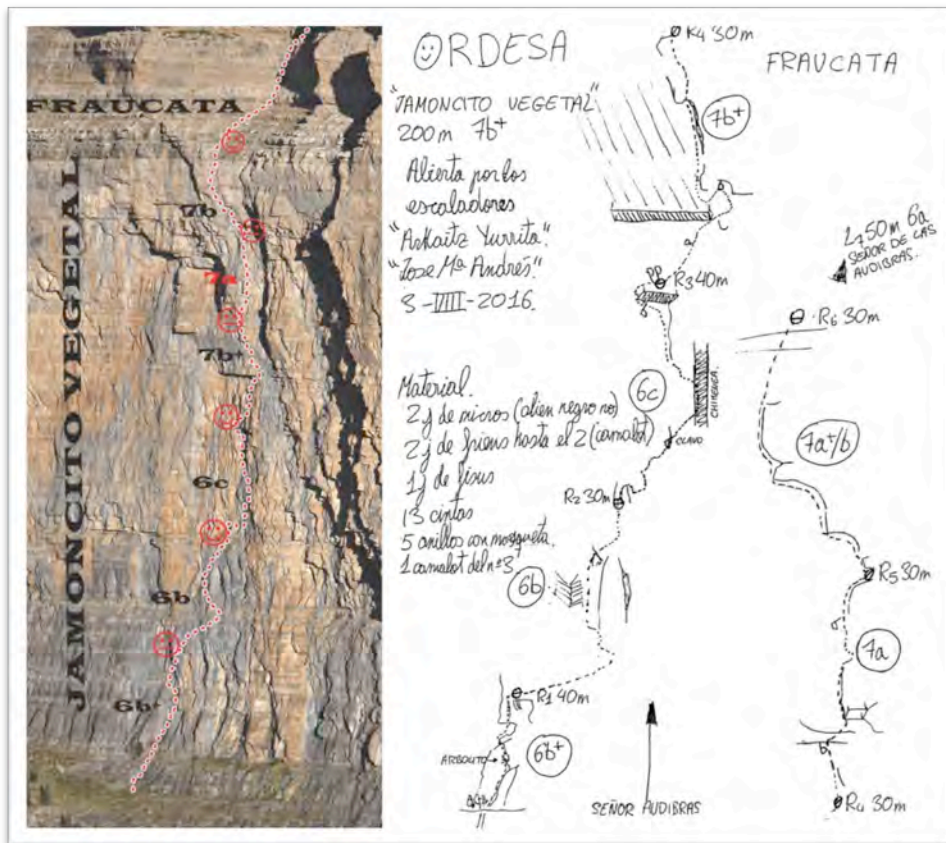 FRAUCATA
JAMONCITO VEGETAL
7b
7a
7b+
6c
6b
6b+
ORDESA
FRAUCATA
"JAMONCITO VEGETAL"
200m 7b+
Alierta por los
escaladores
"Askaitz Yurrita".
"Jose Mª Andrés".
3-VIII-2016.
Material.
2 j de micros (alien negro no)
2 j de friens hasta el 2 (camalot)
1 j de fisus
13 cintas
5 anillos con mosqueta.
1 camalot del nº 3
R4 30m
7b+
R3 40m
6c
CHIMENEA
CLAVO
R2 30m
6b
R1 40m
6b+
ARBOLITO
SEÑOR AUDIBRAS
L7 50m 6a
SEÑOR DE LAS
AUDIBRAS.
R6 30m
7a+/b
R5 30m
7a
R4 30m